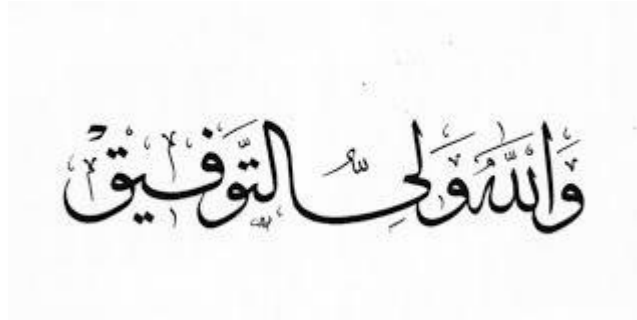 وَاللّٰهُ وَلِيُّ التَّوْفِيقْ